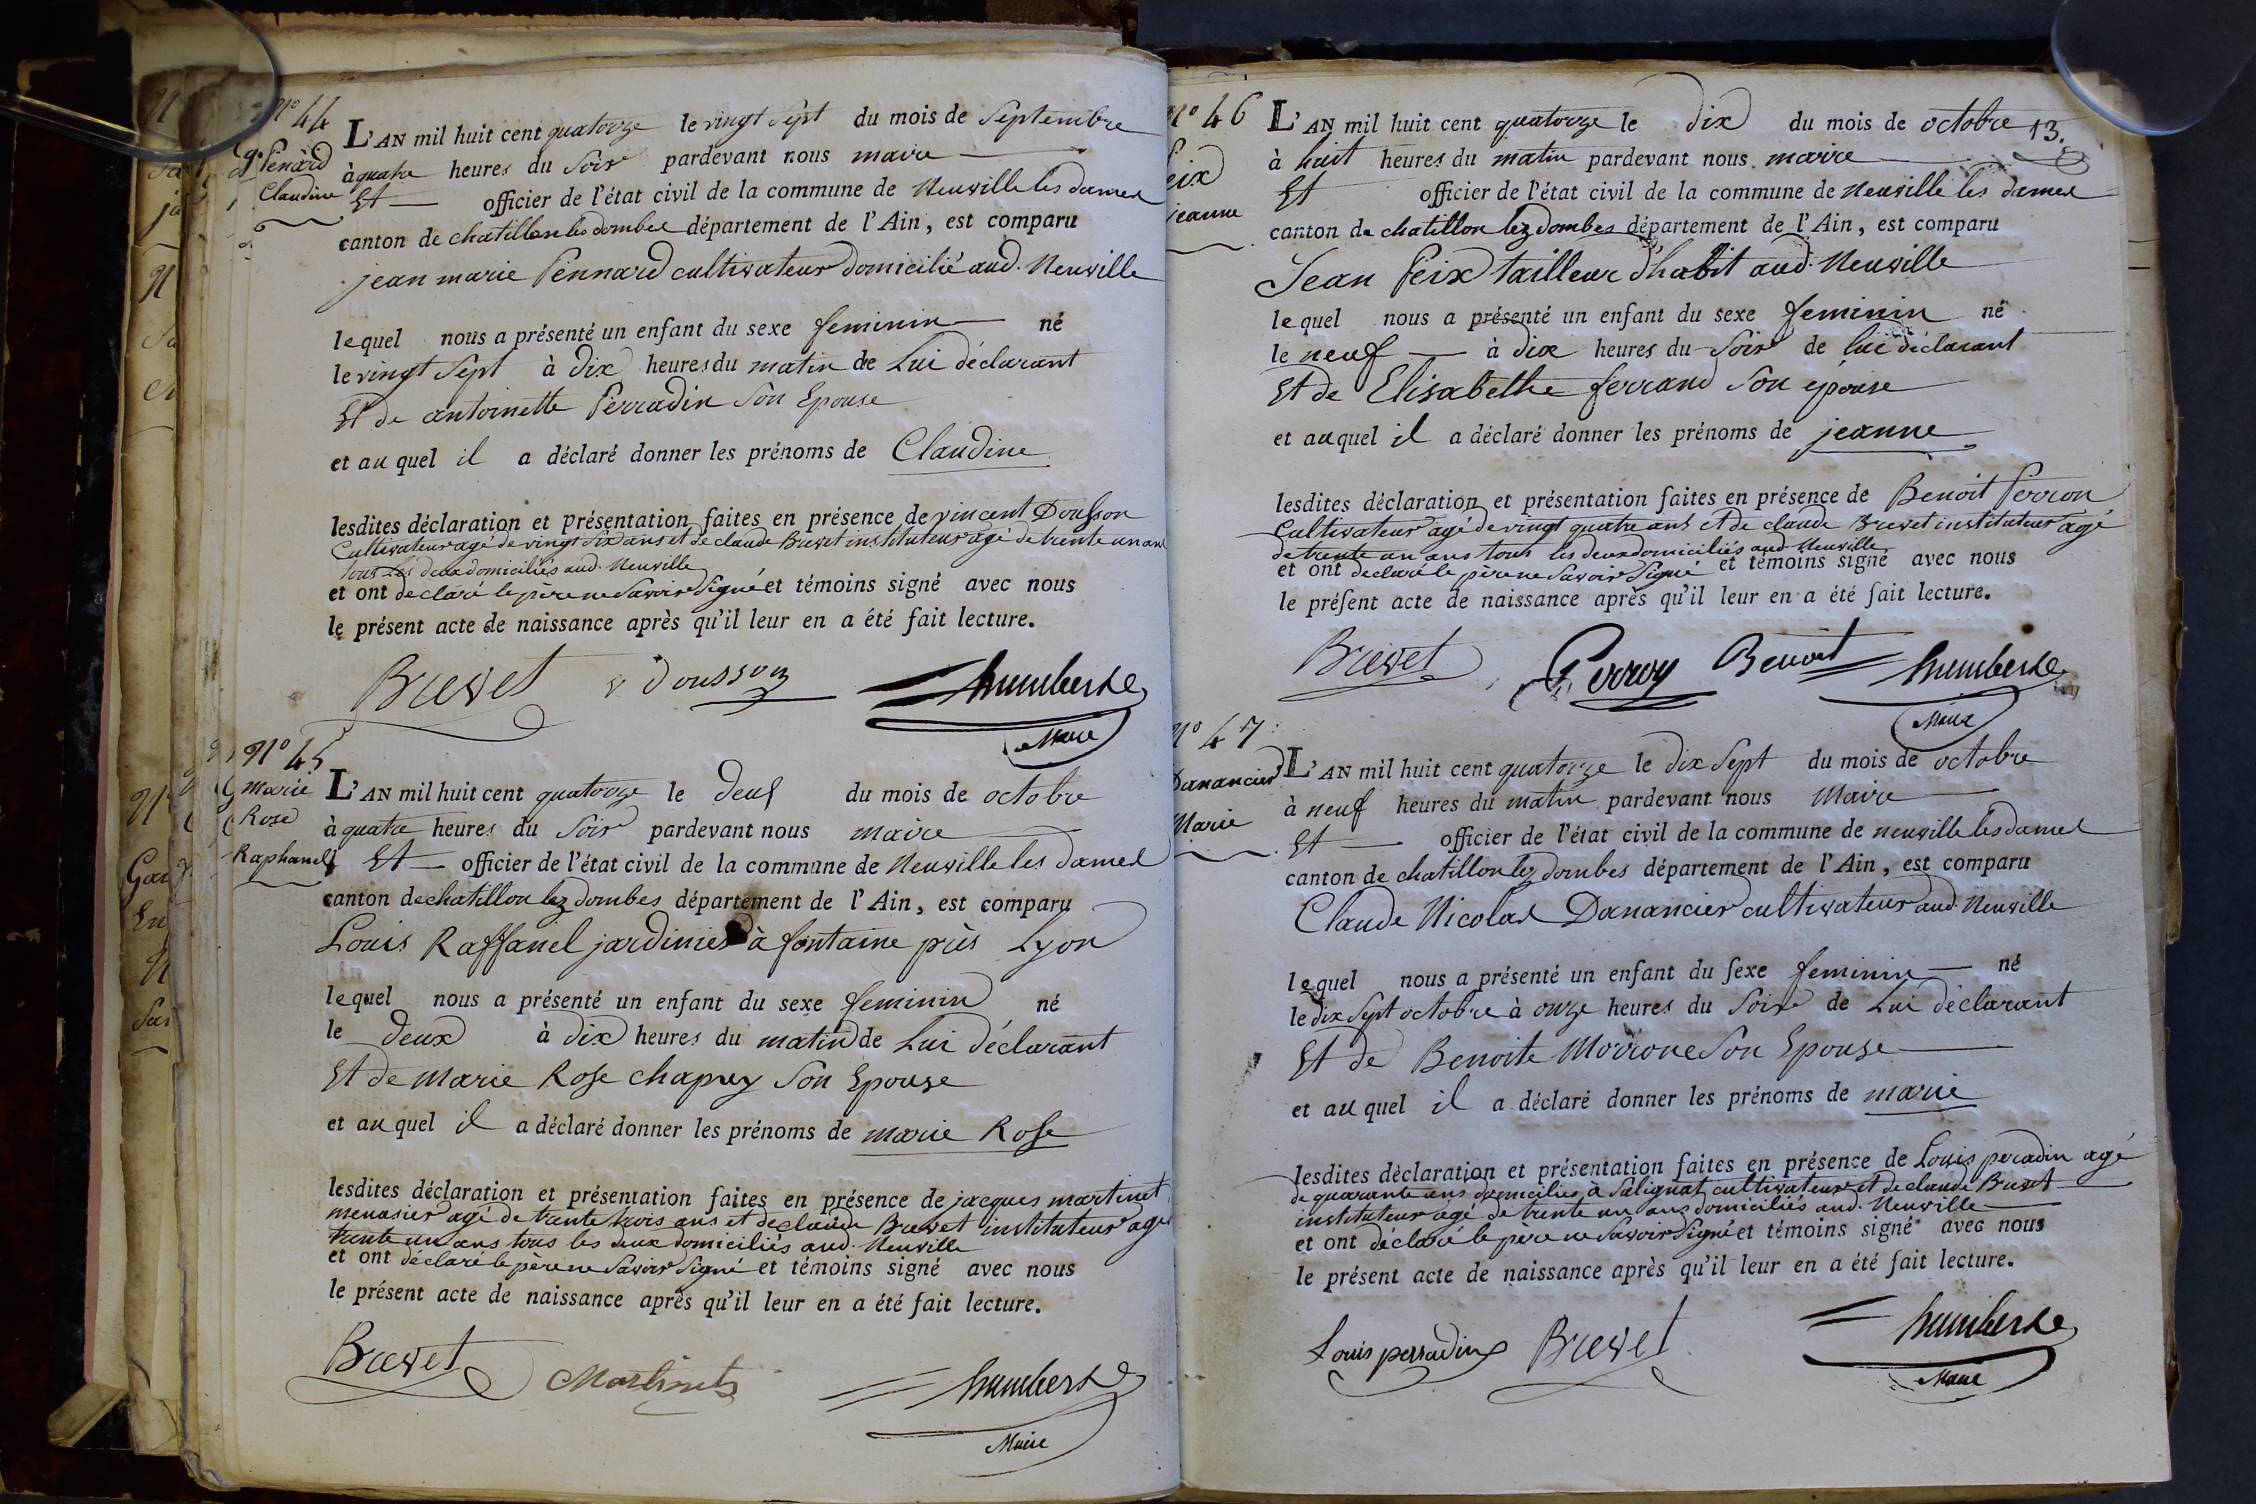 N° 44
Penard
Claudine
L'AN mil huit cent quatorze le vingt sept du mois de Septembre
à quatre heures du Soir pardevant nous maire
Et officier de l'état civil de la commune de Neuville les dames
canton de chatillon les dombes département de l'Ain, est comparu
jean marie Pennard cultivateur domicilié aud. Neuville
lequel nous a présenté un enfant du sexe feminin né
le vingt Sept à dix heures du matin de Lui déclarant
Et de antoinette Perradin Son Epouse
et auquel il a déclaré donner les prénoms de Claudine
lesdites déclaration et présentation faites en présence de vincent Dousson
Cultivateur agé de vingt six ans et de claude Brevet instituteur agé de trente un ans
tous les deux domiciliés aud. Neuville
et ont déclaré le père ne Savoir Signé et témoins signé avec nous
le présent acte de naissance après qu'il leur en a été fait lecture.
Brevet v Dousson humberte
Maire
N° 45
marie
Rose
Raphanel
L'AN mil huit cent quatorze le deux du mois de octobre
à quatre heures du Soir pardevant nous maire
Et officier de l'état civil de la commune de Neuville les dames
canton de chatillon lez dombes département de l'Ain, est comparu
Louis Raffanel jardinier à fontaine près Lyon
lequel nous a présenté un enfant du sexe feminin né
le deux à dix heures du matin de Lui déclarant
Et de Marie Rose chapuy Son Epouse
et auquel il a déclaré donner les prénoms de marie Rose
lesdites déclaration et présentation faites en présence de jacques martinet
menusier agé de trente trois ans et de claude Brevet instituteur agé
trente un ans tous les deux domiciliés aud. Neuville
et ont déclaré le père ne Savoir Signé et témoins signé avec nous
le présent acte de naissance après qu'il leur en a été fait lecture.
Brevet Martinet humberte
Maire
N° 46
jeanne
13.
L'AN mil huit cent quatorze le dix du mois de octobre
à huit heures du matin pardevant nous maire
Et officier de l'état civil de la commune de Neuville les dames
canton de chatillon lez dombes département de l'Ain, est comparu
Jean Peix tailleur d'habit aud. Neuville
lequel nous a présenté un enfant du sexe feminin né
le neuf à dix heures du Soir de lui déclarant
Et de Elisabethe ferrand Son épouse
et auquel il a déclaré donner les prénoms de jeanne
lesdites déclaration et présentation faites en présence de Benoit Perron
Cultivateur agé de vingt quatre ans et de claude Brevet instituteur agé
de trente un ans tous les deux domiciliés aud. Neuville
et ont déclaré le père ne Savoir Signé et témoins signé avec nous
le présent acte de naissance après qu'il leur en a été fait lecture.
Brevet Perron Benoit humberte
Maire
N° 47
Danancier
Marie
L'AN mil huit cent quatorze le dix Sept du mois de octobre
à neuf heures du matin pardevant nous Maire
Et officier de l'état civil de la commune de neuville les dames
canton de chatillon lez dombes département de l'Ain, est comparu
Claude Nicolas Danancier cultivateur aud. Neuville
lequel nous a présenté un enfant du sexe feminin né
le dix Sept octobre à onze heures du Soir de Lui déclarant
Et de Benoite Morrone Son Epouse
et auquel il a déclaré donner les prénoms de marie
lesdites déclaration et présentation faites en présence de Louis peradin agé
de quarante ans domiciliés à Salignat cultivateur et de claude Brevet
instituteur agé de trente un ans domiciliés aud. Neuville
et ont déclaré le père ne Savoir Signé et témoins signé avec nous
le présent acte de naissance après qu'il leur en a été fait lecture.
Louis perradin Brevet humberte
Maire